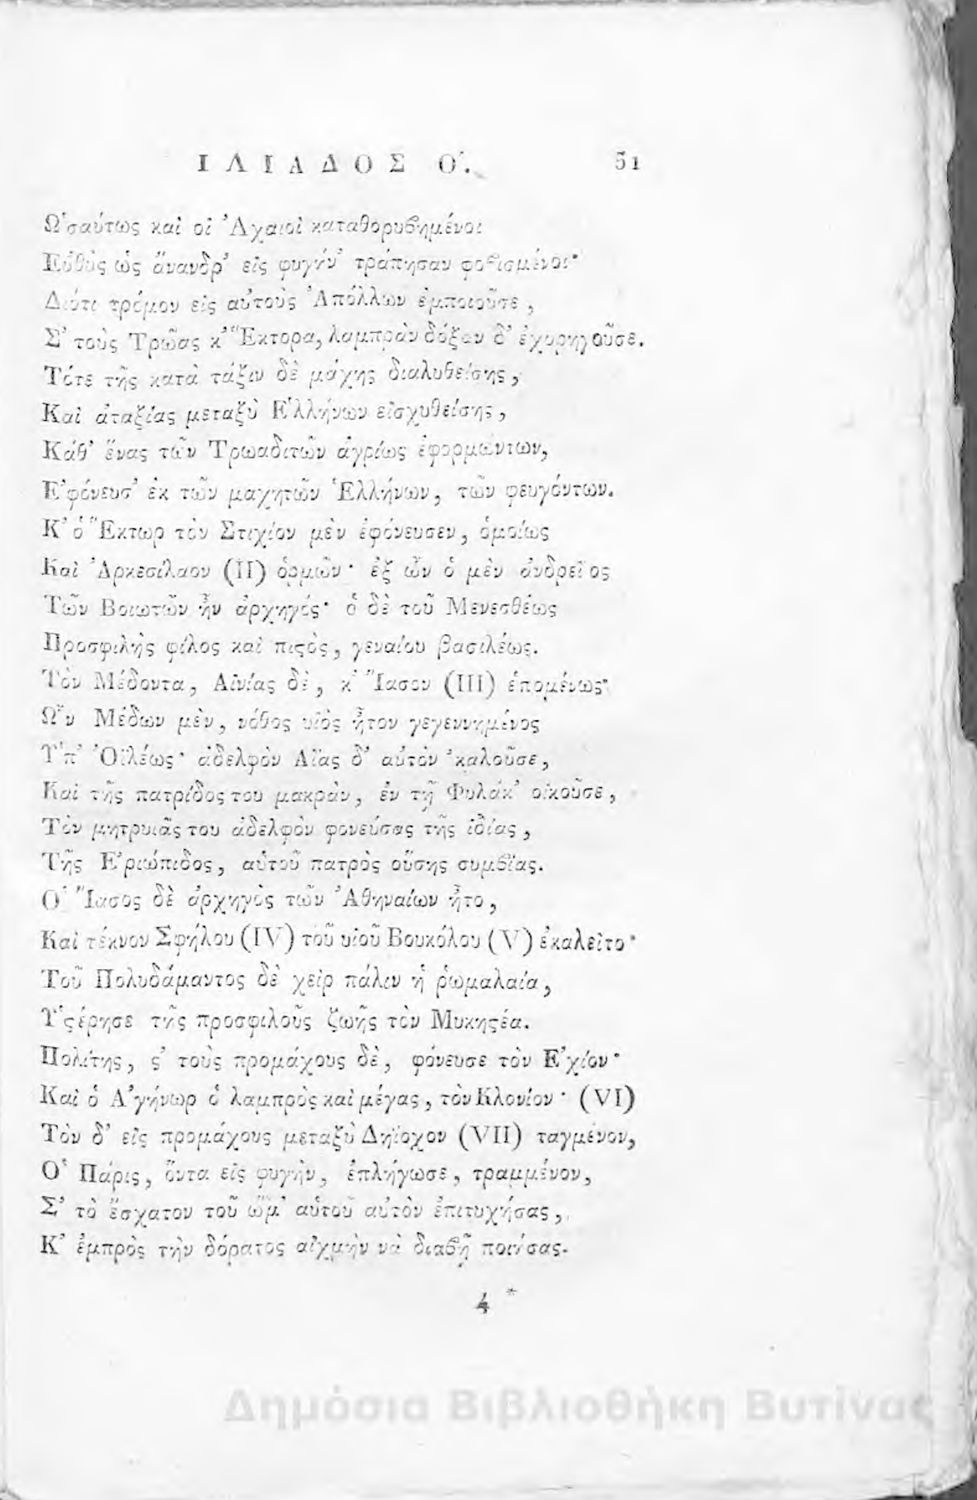 ΙΛΙΑΔΟΣ Ο΄. 51
Ὡσαύτως καὶ οἱ Ἀχαιοὶ καταθορυβημένοι
Εὐθὺς ὡς ἄνανδρ’ εἰς φυγὴν τράπησαν φοβισμένοι·
Διότι τρόμον εἰς αὐτοὺς Ἀπόλλων ἐμποιοῦσε,
Σ’ τοὺς Τρῶας κ’ Ἕκτορα, λαμπρὰν δόξαν δ’ ἐχορηγοῦσε.
Τότε τῆς κατὰ τάξιν δὲ μάχης διαλυθείσης,
Καὶ ἀταξίας μεταξὺ Ἑλλήνων εἰσχυθείσης,
Κάθ’ ἕνας τῶν Τρωαδιτῶν ἀγρίως ἐφορμώντων,
Ἐφόνευσ’ ἐκ τῶν μαχητῶν Ἑλλήνων, τῶν φευγόντων.
Κ’ ὁ Ἕκτωρ τὸν Στιχίον μὲν ἐφόνευσεν, ὁμοίως
Καὶ Ἀρκεσίλαον (II) ὁρμῶν· ἐξ ὧν ὁ μὲν ἀνδρεῖος
Τῶν Βοιωτῶν ἦν ἀρχηγός· ὁ δὲ τοῦ Μενεσθέως
Προσφιλὴς φίλος καὶ πιϛὸς, γεναίου βασιλέως.
Τὸν Μέδοντα, Αἰνίας δὲ, κ’ Ἴασον (III) ἑπομένως·
Ὧν Μέδων μὲν, νόθος υἱὸς ἦτον γεγεννημένος
Ὑπ’ Ὀϊλέως· ἀδελφὸν Αἴας δ’ αὐτὸν ’καλοῦσε,
Καὶ τῆς πατρίδος του μακρὰν, ἐν τῇ Φυλάκ’ οἰκοῦσε,
Τὸν μητρυιᾶς του ἀδελφὸν φονεύσας τῆς ἰδίας,
Τῆς Ἐριώπιδος, αὑτοῦ πατρὸς οὔσης συμβίας.
Ὁ Ἴασος δὲ ἀρχηγὸς τῶν Ἀθηναίων ἦτο,
Καὶ τέκνον Σφήλου (IV) τοῦ υἱοῦ Βουκόλου (V) ἐκαλεῖτο·
Τοῦ Πολυδάμαντος δὲ χεὶρ πάλιν ἡ ῥωμαλαία,
Ὑϛέρησε τῆς προσφιλοῦς ζωῆς τὸν Μυκηϛέα.
Πολίτης, ϛ’ τοὺς προμάχους δὲ, φόνευσε τὸν Ἐχίον·
Καὶ ὁ Ἀγήνωρ ὁ λαμπρὸς καὶ μέγας, τὸν Κλονίον· (VI)
Τὸν δ’ εἰς προμάχους μεταξὺ Δηΐοχον (VII) ταγμένον,
Ὁ Πάρις, ὄντα εἰς φυγὴν, ἐπλήγωσε, τραμμένον,
Σ’ τὸ ἔσχατον τοῦ ὤμ’ αὐτοῦ αὐτὸν ἐπιτυχήσας,
Κ’ ἐμπρὸς τὴν δόρατος αἰχμὴν νὰ διαβῇ ποιήσας.
4 *
Δημόσια Βιβλιοθήκη Βυτίνας